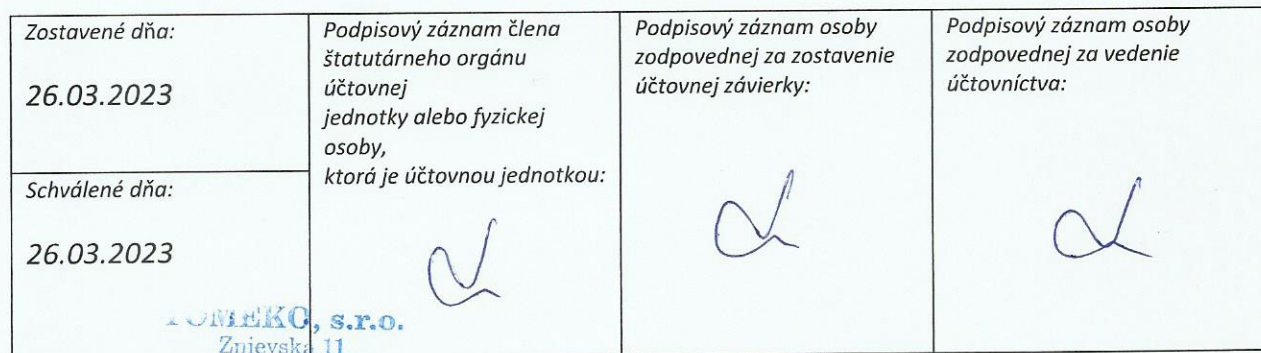 Zostavené dňa:
26.03.2023
Schválené dňa:
26.03.2023
Podpisový záznam člena
štatutárneho orgánu
účtovnej
jednotky alebo fyzickej
osoby,
ktorá je účtovnou jednotkou:
Podpisový záznam osoby
zodpovednej za zostavenie
účtovnej závierky:
Podpisový záznam osoby
zodpovednej za vedenie
účtovníctva:
TOMEKO, s.r.o.
Znievska 11